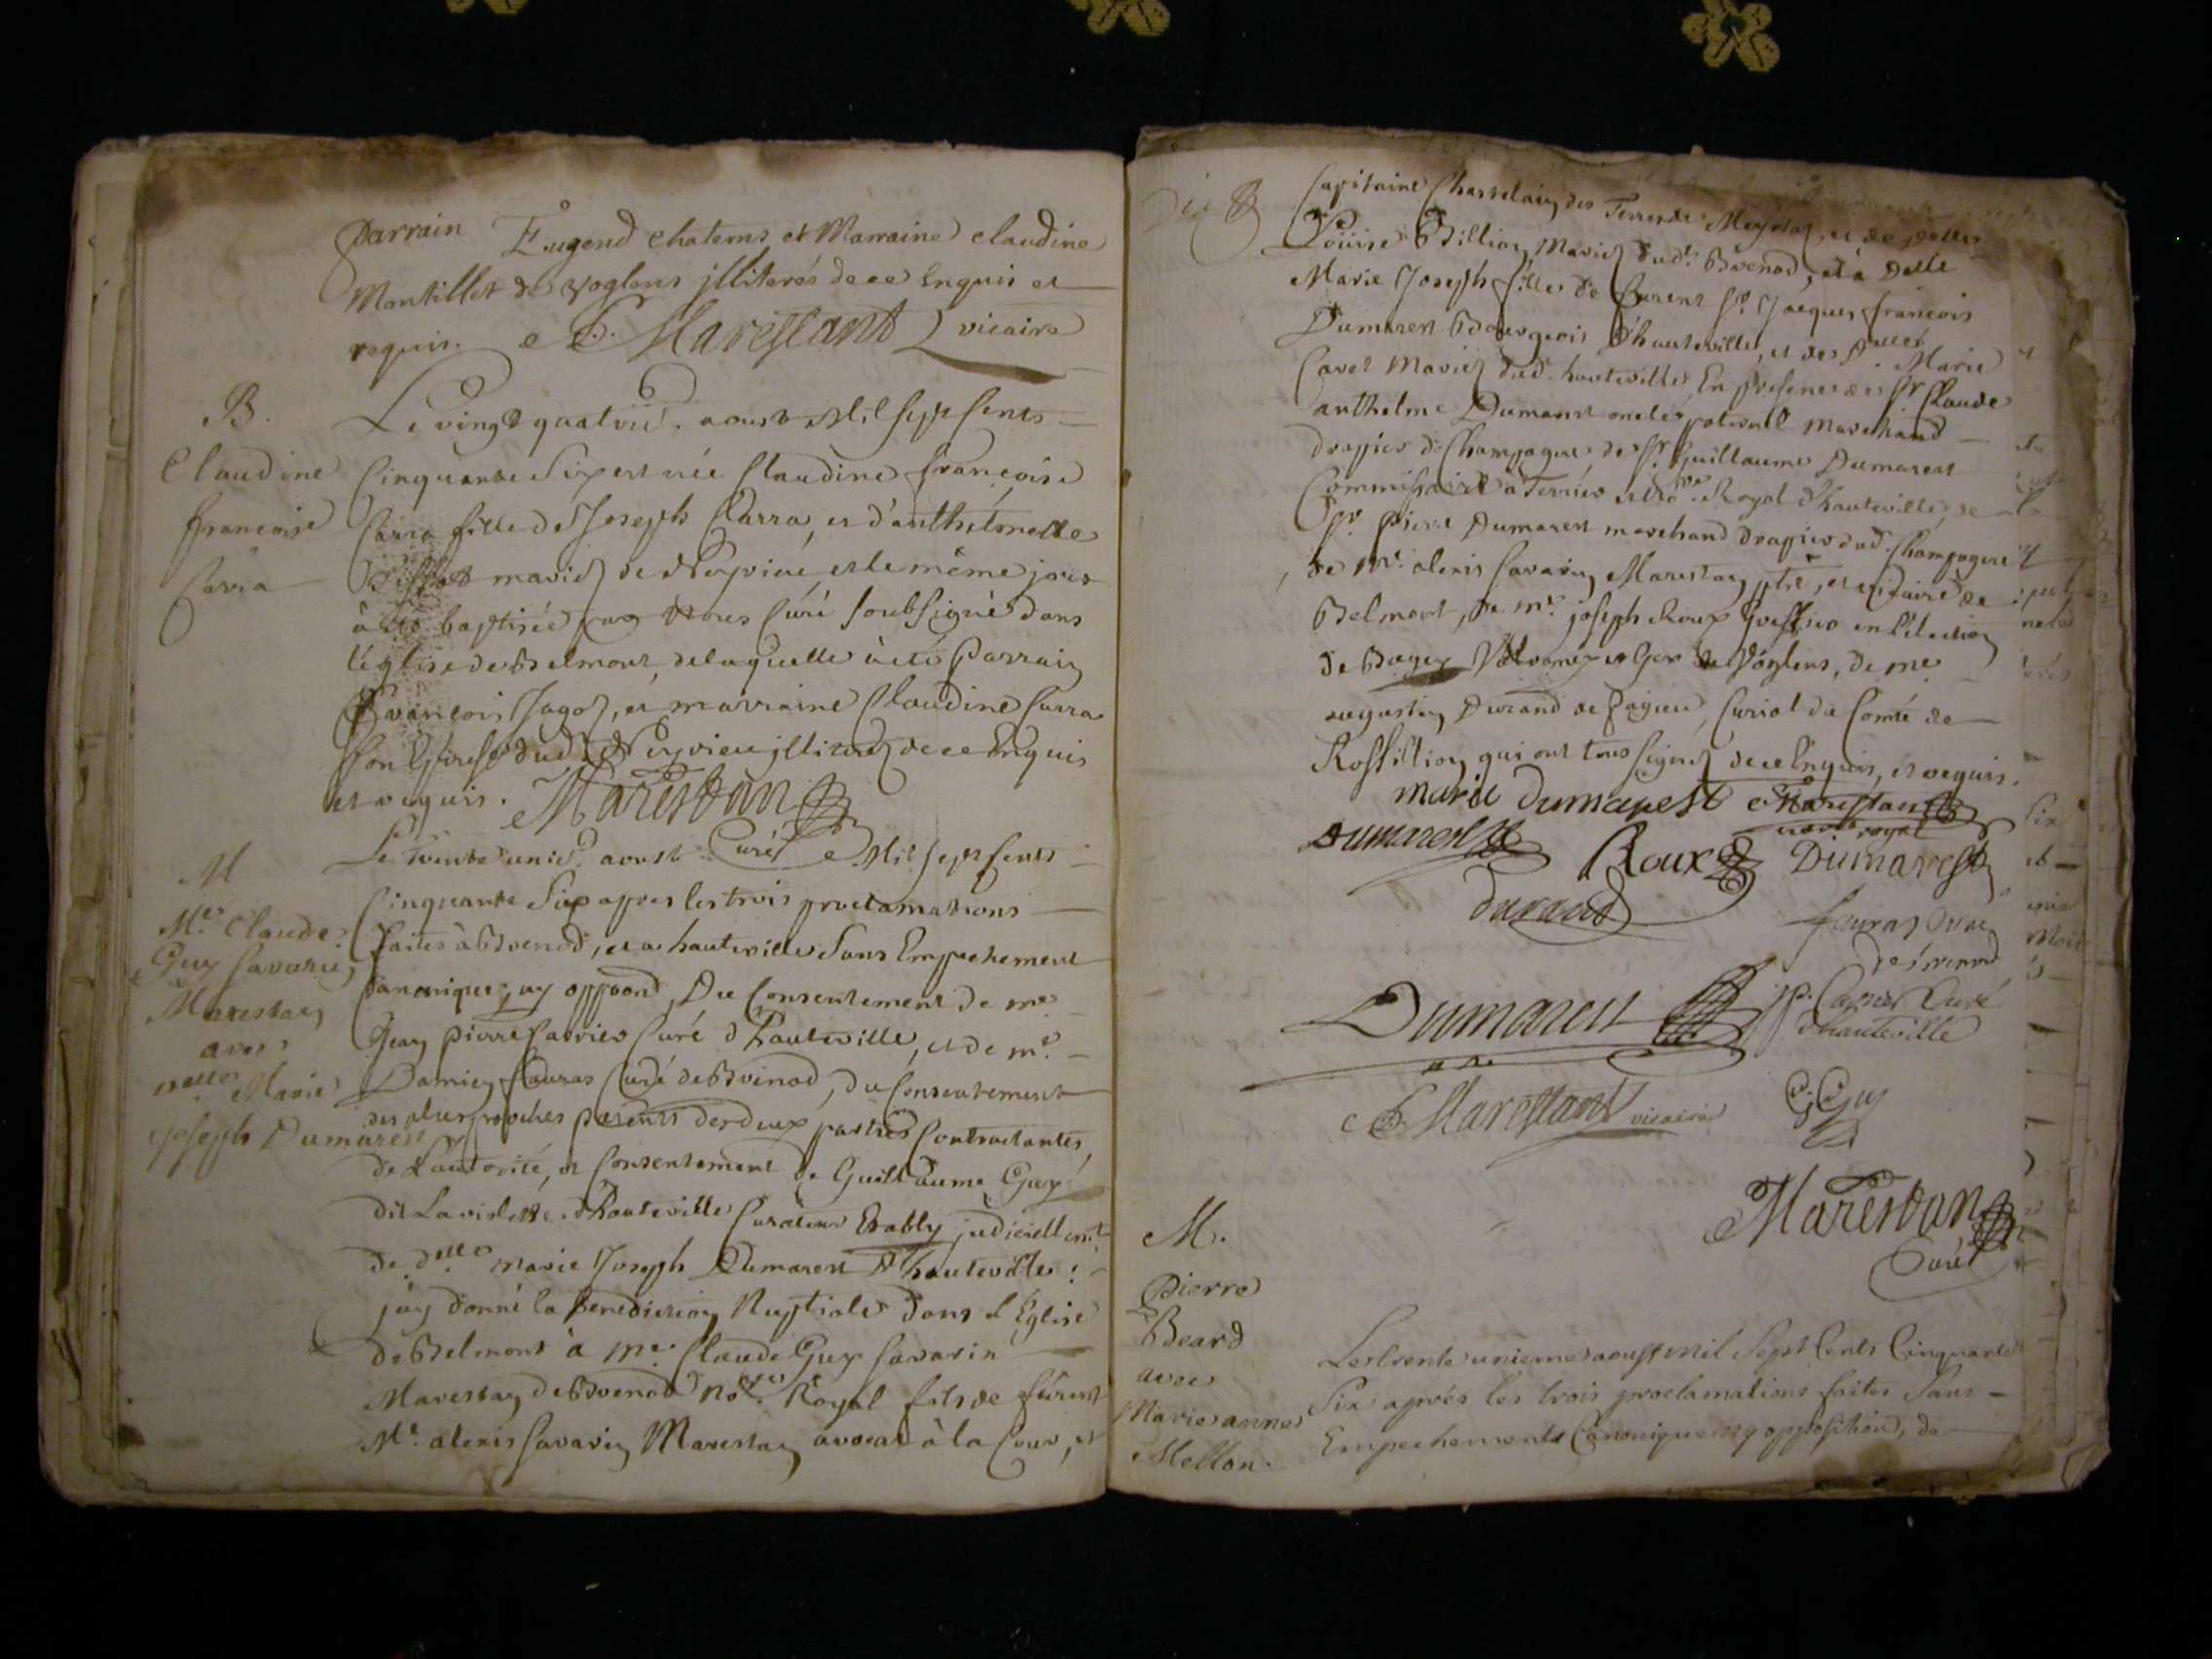 parrain Eugend chatems et Marraine claudine
Montillet de voglens jlliterés de ce Enquis et
requis. Marestant vicaire
B.
Claudine
francoise
Carra
Le vingt quatrie. aoust Mil sept cents
Cinquante Six est née Claudine françoise
Carra fille de Joseph Carra, et d'anthelmette
mariez de Neyrieu, et le même jour
à été baptisée par Nous Curé soubsigné dans
l'église de Belmont, de laquelle à été Parrain
François Jagoz, et marraine Claudine Carra
son Epouse dud. Neyrieu jlliterez de ce Enquis
et requis. Marestan
Curé
M
Me. Claude
Guy Savarin
Marestan
avec
delle. Marie
joseph Dumarest
Le trente unie. aoust Mil sept cents
Cinquante Six apres les trois proclamations
faites à Brenod, et a hauteville Sans Empechement
Canonique, ny oppoond, Du Consentement de me.
Jean pierre Curé d'hauteville, et de me.
Damien fauras Curé de Brenod, du Consentement
des plus proches parents des deux parties Contractantes,
de L'autorité, et Consentement de Guillaume Guy
dit Laviolette d'hauteville Curateur Etably judiciellemt.
de delle. Marie Joseph Dumarest D'hauteville:
j'ay donné la Benediction Nuptiale dans L'Eglise
de Belmont à me. Claude Guy Savarin
Marestan de Brenod Notre. Royal fils de fürent
Me. alexis Savarin Marestan avocat à la Cour, et
Capitaine Chastelain des Terres de et de delle
Loüise Billion Mariez dudt. Brenod, et à Delle
Marie Joseph fille de furent Sr. Jacques françois
Dumarest Bourgeois d'hauteville, et de Delle. Marie
Cavet Mariez dud. hauteville En presence de Sr. Claude
anthelme Dumarest oncle paternel marchand
drapier de Champagne de Sr. Guillaume Dumarest
Commissaire à Terrier et Royal d'hauteville, de
Sr. pierre Dumarest marchand drapier dud. Champagne
de Mr. alexis Savarin Marestan ptre, et vicaire de
Belmont, de me. joseph Roux Greffier en l'Election
de Bugey de Voglens, de me.
augustin Durand de Curial du Comté de
Rossillion qui ont tous signez de ce Enquis, et requis.
marie dumarest Marestan
notre royal
Dumarest Roux Dumarest
durand fauras Curé
de brenod
Dumarest jp. Curé
d'hauteville
Marestant vicaire G Guy
Marestan
Curé
M.
Pierre
Beard
avec
Marie anne
Mellon.
Le trente unieme aoust mil Sept Cents Cinquante
Six aprés les trois proclamations faites Sans
Empechements Canonique ny opposition, de